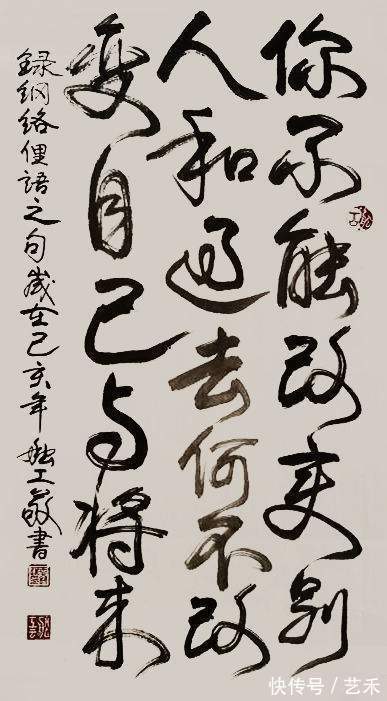 你不能改变别
人和过去何不改
变自己与将来
録網络俚語之句歲在己亥年工敬書
快传号/艺禾